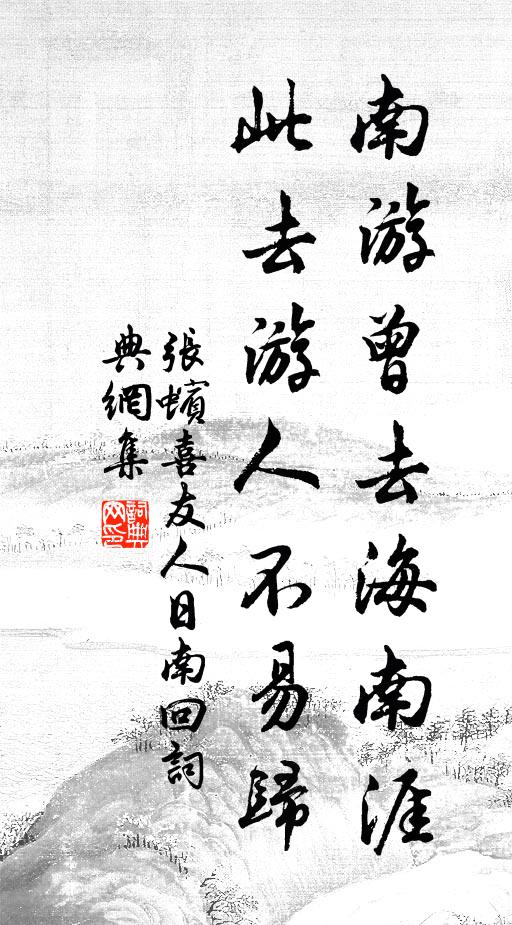 南游曾去海南涯
此去游人不易歸
張蠙喜友人日南回詞
典網集
詞典
网印